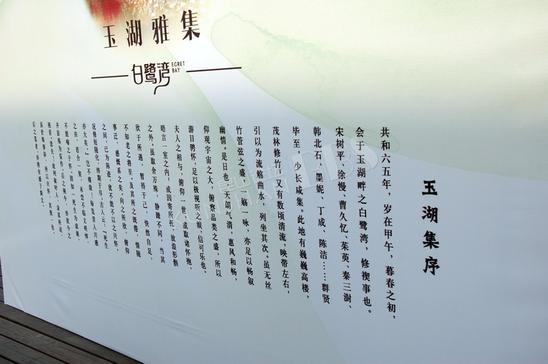 玉湖雅集
白鹭湾
SECRET
BAY
玉湖集序
共和六五年，岁在甲午，暮春之初，
会于玉湖畔之白鹭湾，修禊事也。
宋树平、徐慢、曹久忆、茱萸、秦三澍、
韩北石、墨妮、丁成、陈洁……群贤
毕至，少长咸集。此地有巍巍高楼，
茂林修竹；又有数顷清流，映带左右，
引以为流觞曲水，列坐其次，虽无丝
竹管弦之盛，一觞一咏，亦足以畅叙
幽情。是日也，天朗气清，惠风和畅，
仰观宇宙之大，俯察品类之盛，所以
游目骋怀，足以极视听之娱，信可乐也。
夫人之相与，俯仰一世，或取诸怀抱，
晤言一室之内；或因寄所托，放浪形骸
之外。虽取舍万殊，静躁不同，当其
欣于所遇，暂得于己，快然自足，
不知老之将至。及其所之既倦，情随
事迁，感慨系之矣。向之所欣，俯仰